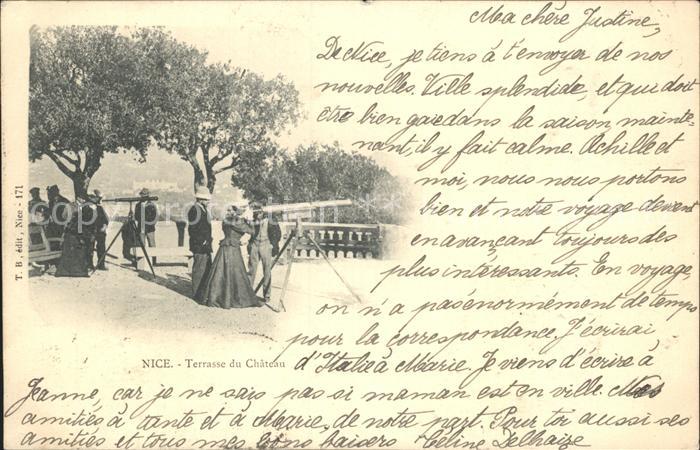 Ma chère Justine,
De Nice, je tiens à t'envoyer de nos
nouvelles. Ville splendide, et qui doit
être bien gaie dans la saison, mainte-
nant, il y fait calme. Achille et
moi, nous nous portons
bien et notre voyage devient
en avançant toujours des
plus intéressants. En voyage,
on n'a pas énormément de temps
pour la correspondance. J'écrirai
d'Italie à Marie. Je viens d'écrire à
Jeanne, car je ne sais pas si maman est en ville. Mes
amitiés à tante et à Marie, de notre part. Pour toi aussi ses
amitiés et tous mes bons baisers Céline Delhaize
T. B, édit, Nice - 171
NICE. - Terrasse du Château